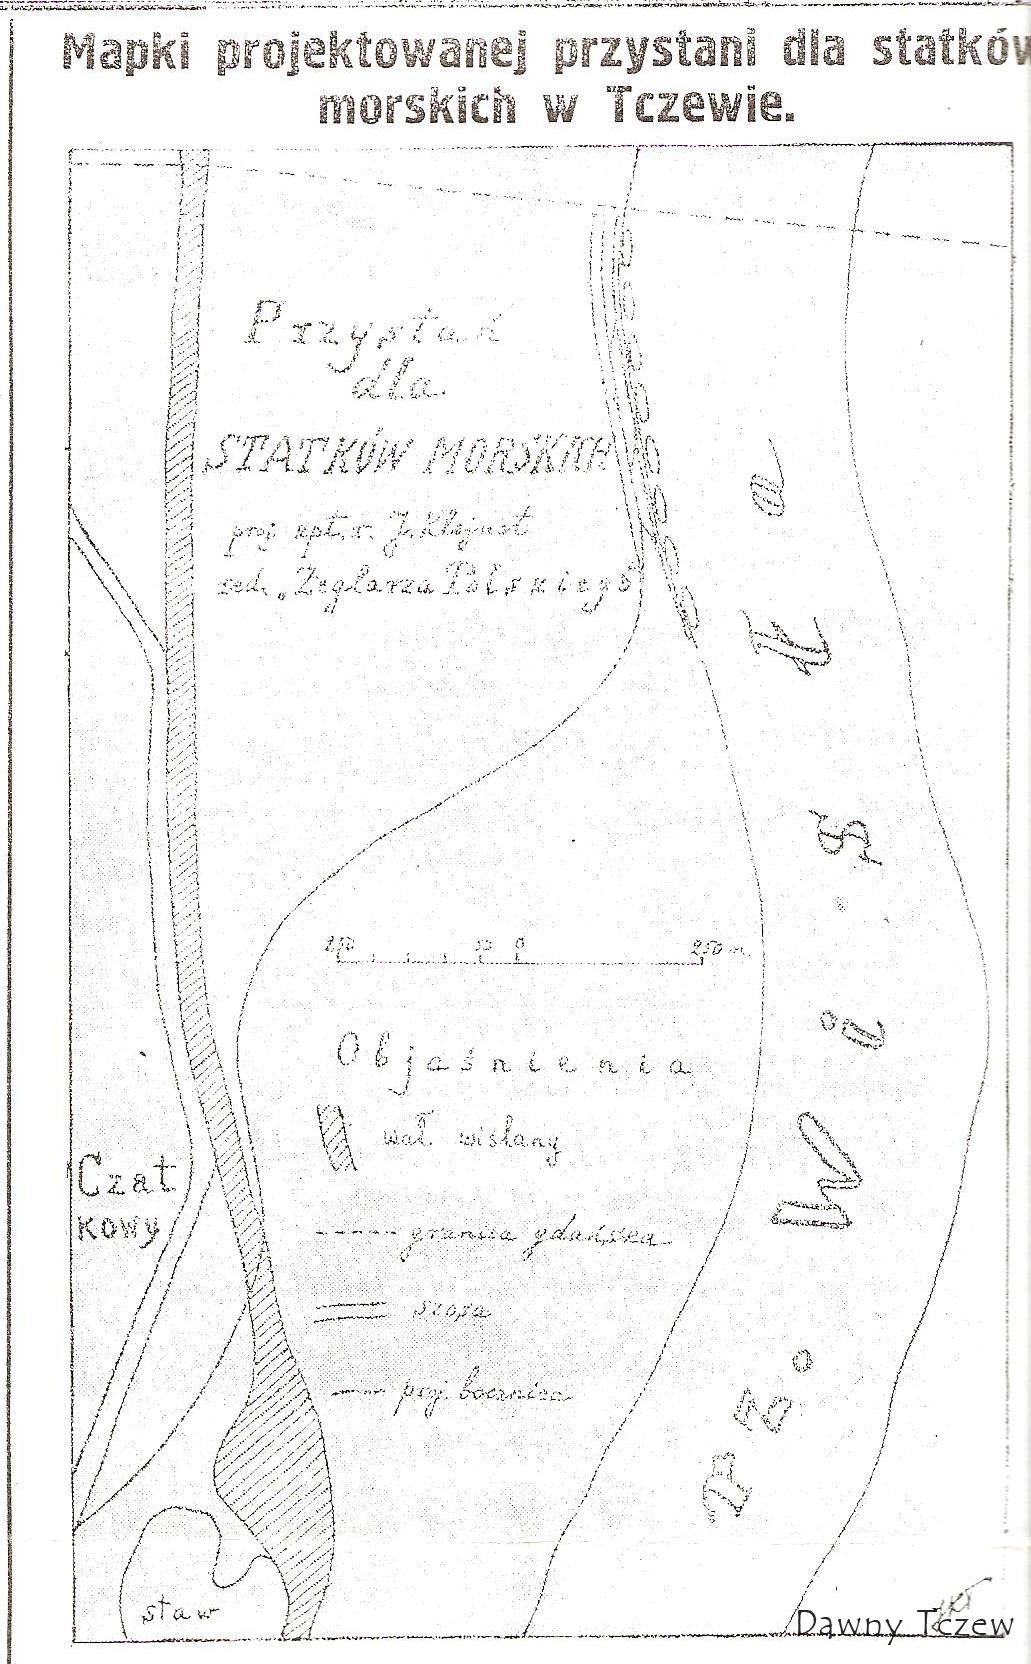 Mapki projektowanej przystani dla statków
morskich w Tczewie.
Przystań
dla
STATKÓW MORSKICH
proj. kpt. J. Klejnot
red. „Żeglarza Polskiego"
Rz. Wisła
250 50 0 250 m
Objaśnienia
wał wiślany
granica gdańska
szosa
proj. bocznica
Czat
kowy
staw
Dawny Tczew